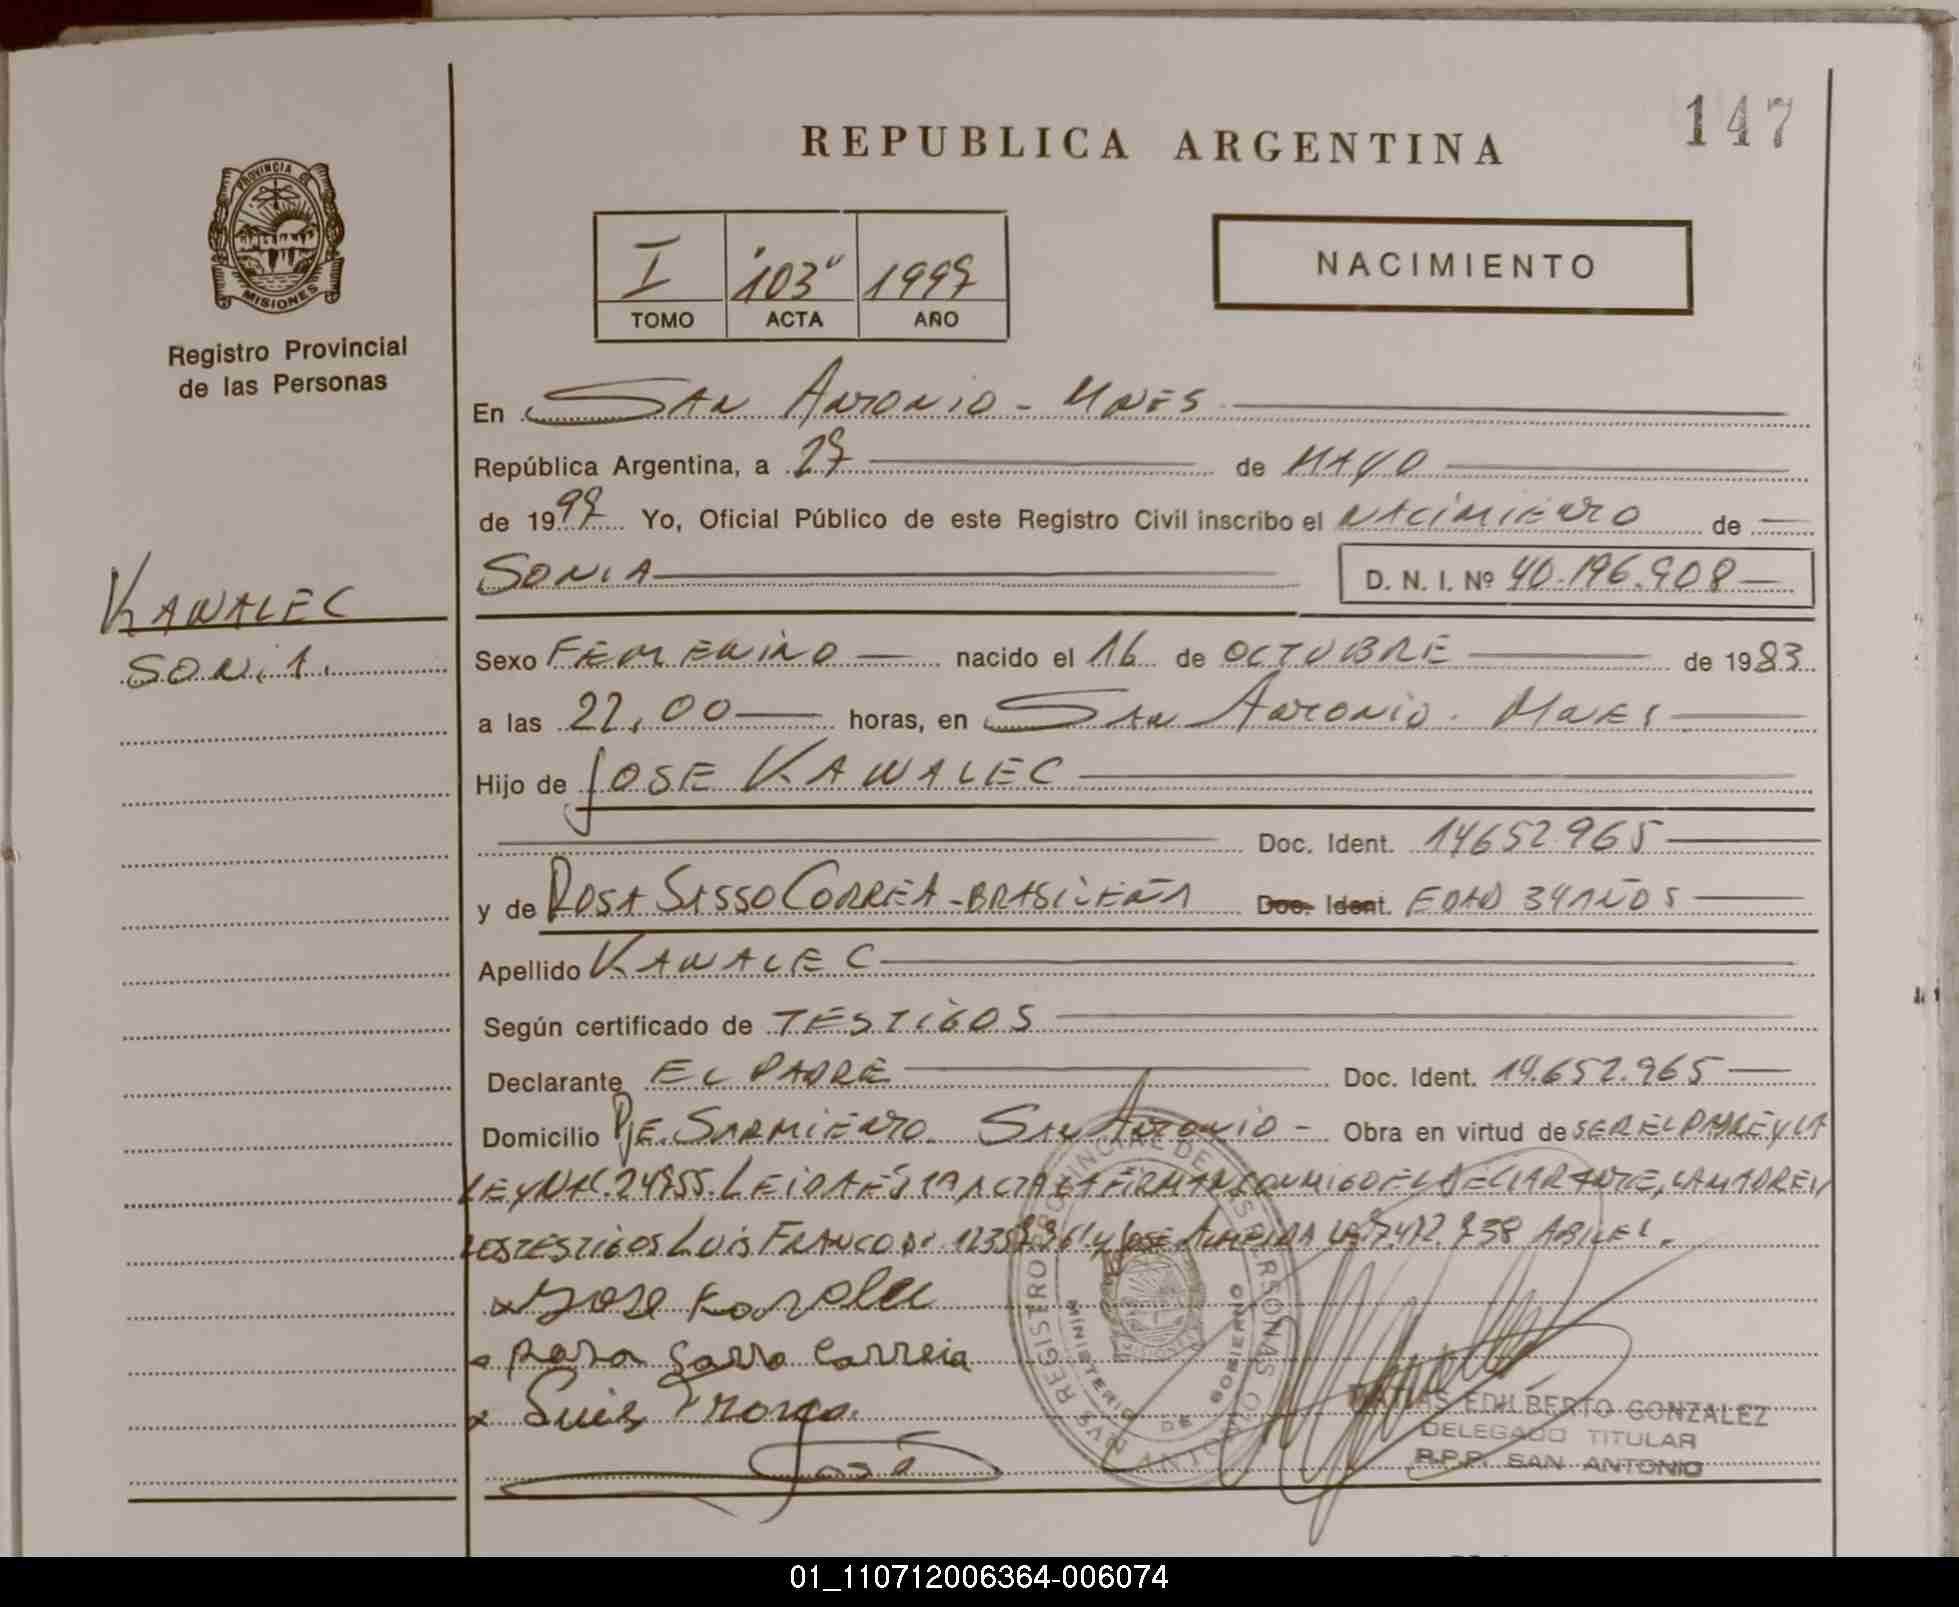 147
REPUBLICA ARGENTINA
PROVINCIA DE
MISIONES
Registro Provincial
de las Personas
I "103" 1997
TOMO ACTA AÑO
NACIMIENTO
En SAN ANTONIO - MNES
República Argentina, a 27 de MAYO
de 1997 Yo, Oficial Público de este Registro Civil inscribo el NACIMIENTO de
SONIA D. N. I. Nº 40.196.908
KAWALEC
SONIA
Sexo FEMENINO nacido el 16 de OCTUBRE de 1983
a las 22,00 horas, en SAN ANTONIO - MNES
Hijo de JOSE KAWALEC
Doc. Ident. 14652965
y de ROSA SASSO CORREA - BRASILEÑA Doc. Ident. EDAD 34 AÑOS
Apellido KAWALEC
Según certificado de TESTIGOS
Declarante EL PADRE Doc. Ident. 14.652.965
Domicilio PJE. SARMIENTO SAN ANTONIO - Obra en virtud de SER EL PADRE Y LA
LEY NAC. 24755. LEIDA ÉSTA ACTA LA FIRMAN CONMIGO EL DECLARANTE, LA MADRE Y
LOS TESTIGOS LUIS FRANCO DI y JOSE ALMEIDA
Jose
Luis
José
REGISTRO PROVINCIAL DE LAS PERSONAS
MINISTERIO DE GOBIERNO
SAN ANTONIO
MATIAS EDILBERTO GONZALEZ
DELEGADO TITULAR
R.P.P. SAN ANTONIO
01_110712006364-006074